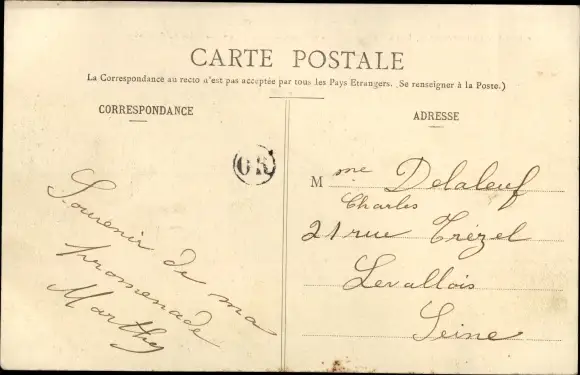 CARTE POSTALE
La Correspondance au recto n'est pas acceptée par tous les Pays Etrangers. (Se renseigner à la Poste.)
CORRESPONDANCE
Souvenir de ma
promenade
Marthe
ADRESSE
Mme Delaleuf
Charles
21 rue Trézel
Levallois
Seine